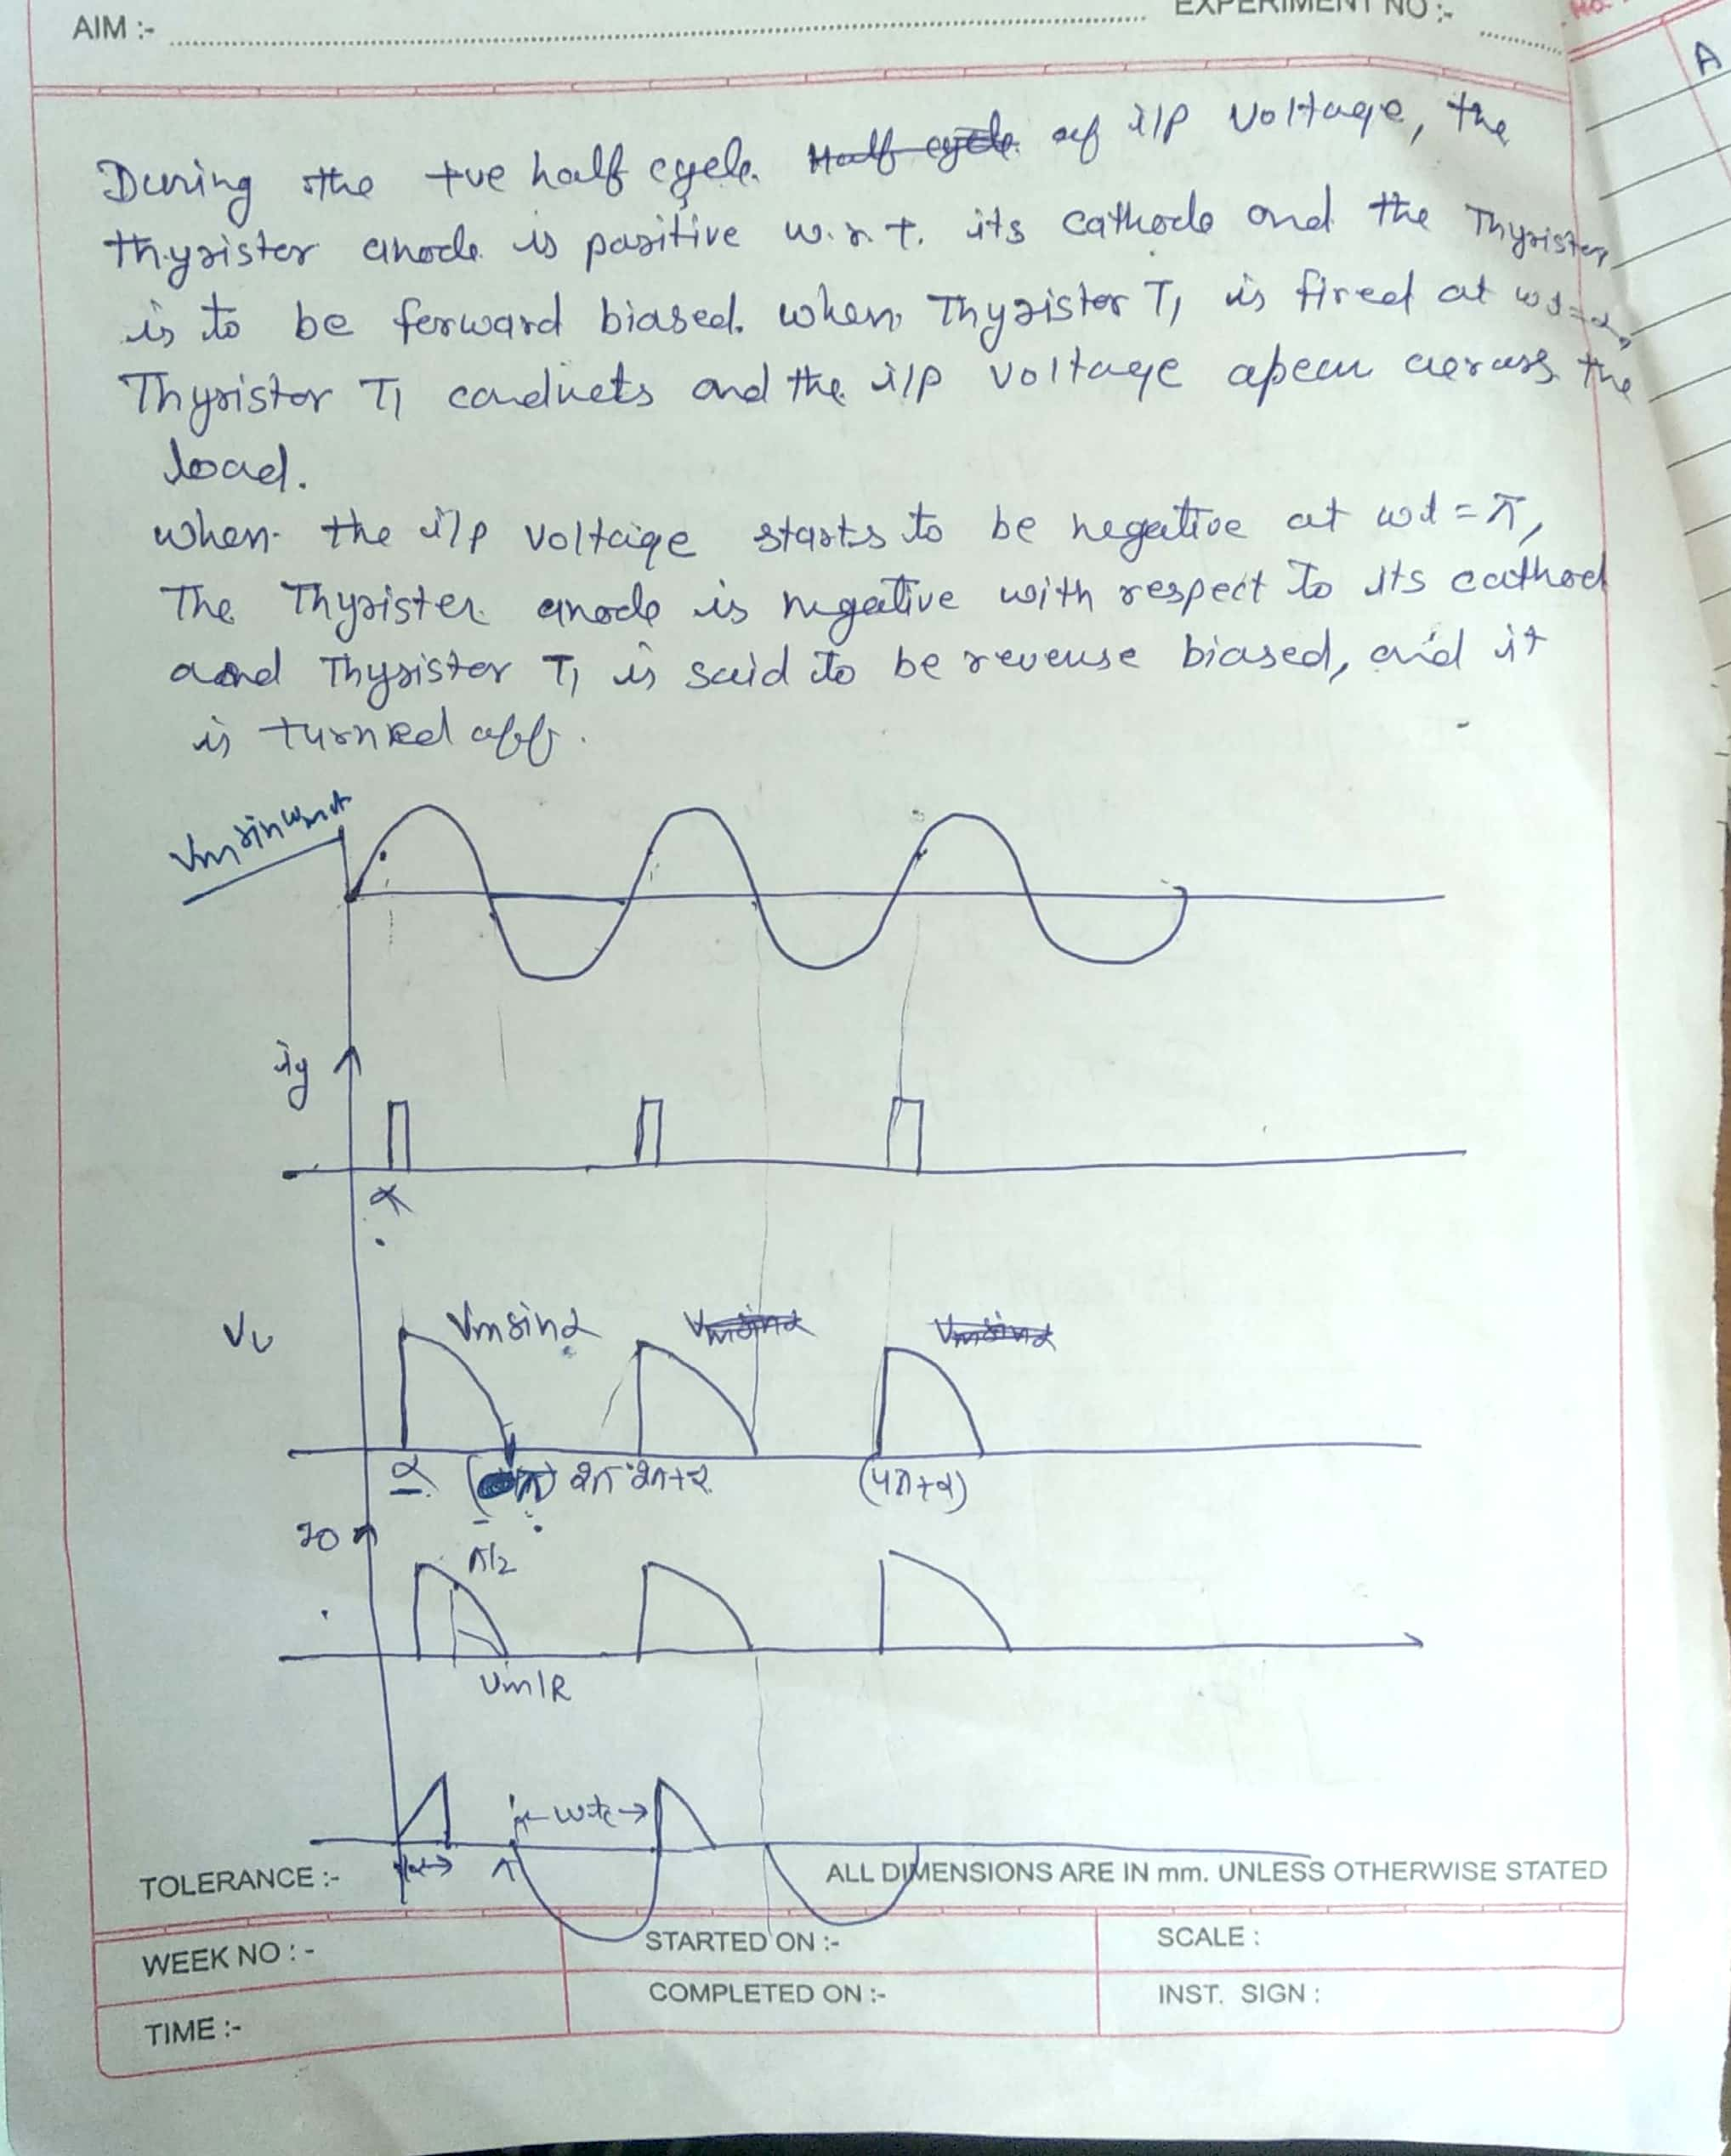 AIM :-
EXPERIMENT NO :-
A
During the +ve half cycle. Half cycle of i/p voltage, the
thyristor anode is positive w.r.t. its cathode and the Thyristor
is to be forward biased. when Thyristor T1 is fired at ωt=α,
Thyristor T1 conducts and the i/p voltage apear across the
load.
when the i/p voltage starts to be negative at ωt = π,
The Thyristor anode is negative with respect to its cathod
and Thyristor T1 is said to be reveuse biased, and it
is turned off.
ig
α
VL
Vmsinα Vmsinα Vmsinα
α 2π 2π+α (4π+α)
π/2
Vm/R
TOLERANCE :-
ALL DIMENSIONS ARE IN mm. UNLESS OTHERWISE STATED
WEEK NO : -
STARTED ON :-
SCALE :
TIME :-
COMPLETED ON :-
INST. SIGN :